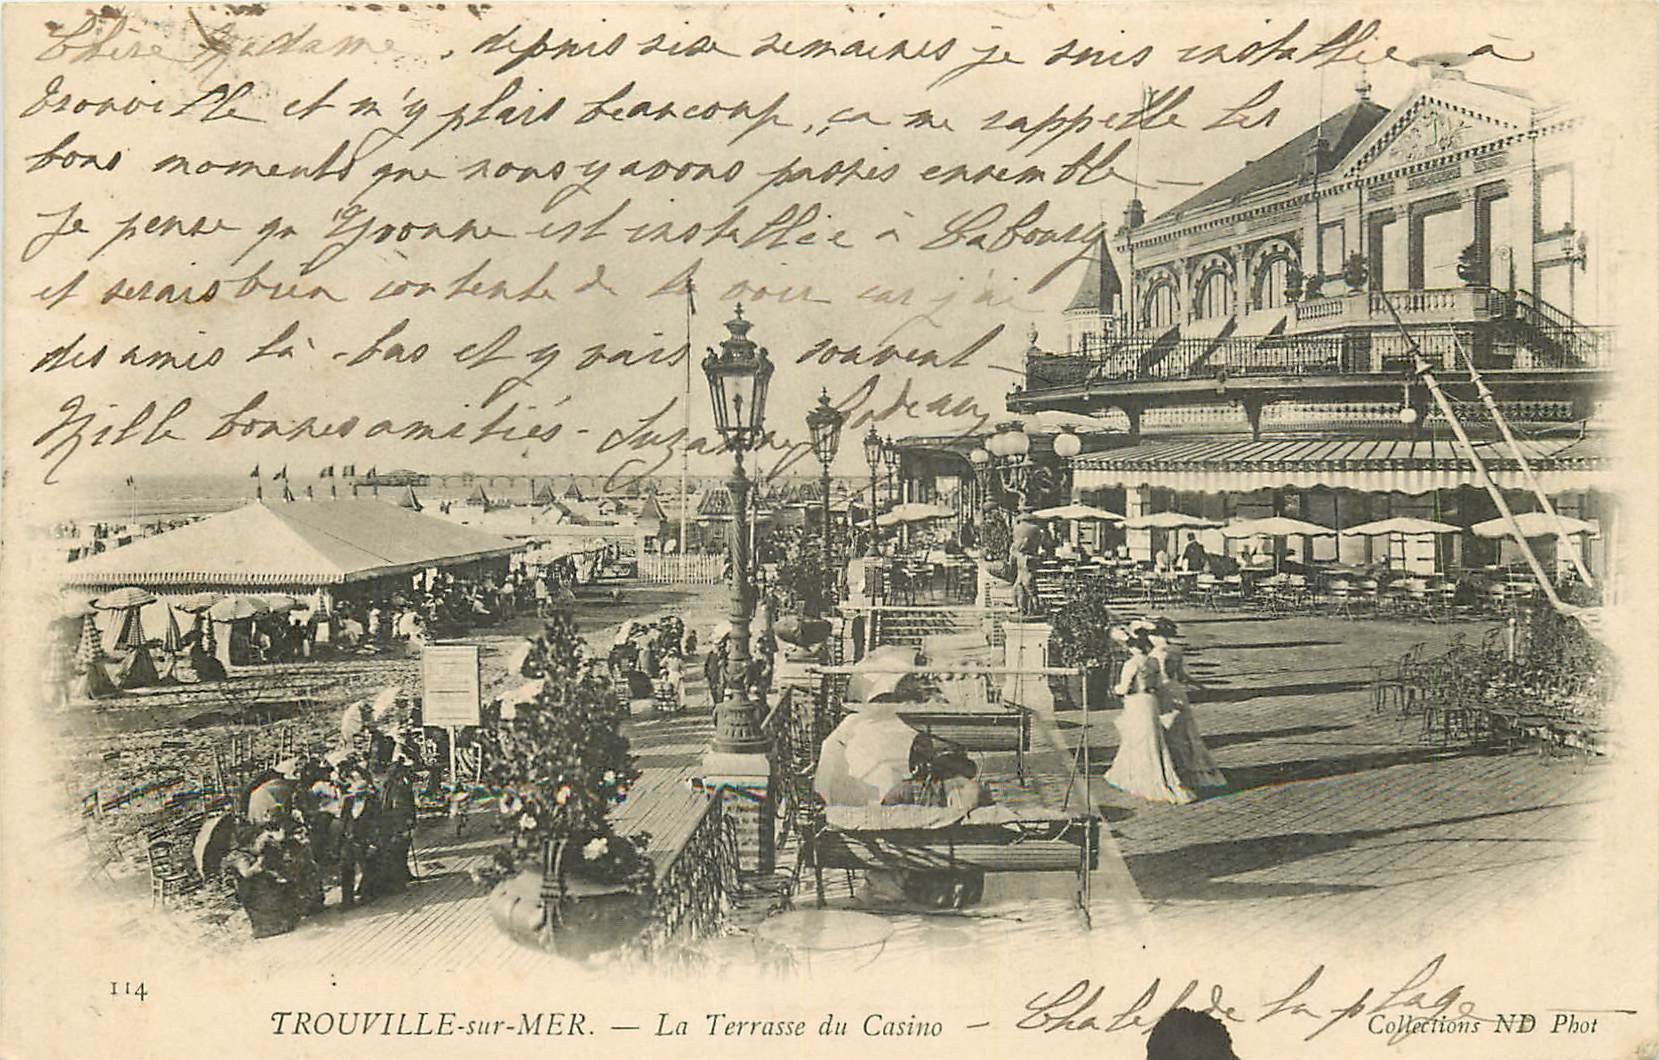 Chère Madame, depuis six semaines je suis installée à
Trouville et m'y plais beaucoup, ça me rappelle les
bons moments que nous y avons passés ensemble —
Je pense qu'Yvonne est installée à Cabourg
et serais bien contente de la voir car j'ai
des amis là-bas et y vais souvent —
Mille bonnes amitiés - Suzanne
114
TROUVILLE-sur-MER. — La Terrasse du Casino — Chalet de la plage
Collections ND Phot